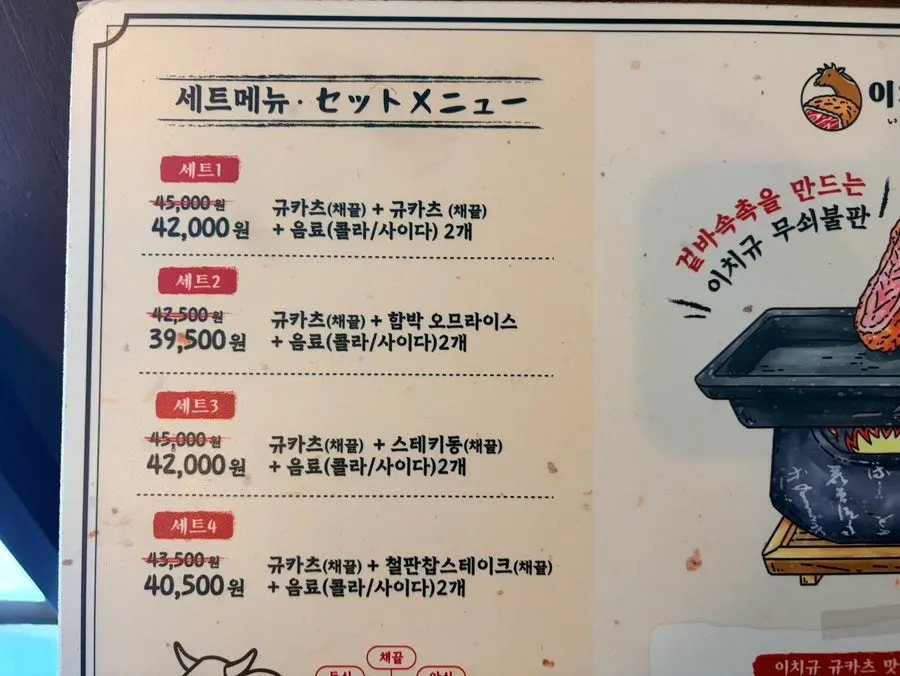 세트메뉴 · セットメニュー
세트1
45,000원
42,000원
규카츠(채끝) + 규카츠 (채끝)
+ 음료(콜라/사이다) 2개
세트2
42,500원
39,500원
규카츠(채끝) + 함박 오므라이스
+ 음료(콜라/사이다)2개
세트3
45,000원
42,000원
규카츠(채끝) + 스테키동(채끝)
+ 음료(콜라/사이다)2개
세트4
43,500원
40,500원
규카츠(채끝) + 철판찹스테이크(채끝)
+ 음료(콜라/사이다)2개
채끝
겉바속촉을 만드는
이치규 무쇠불판
이치규 규카츠 맛